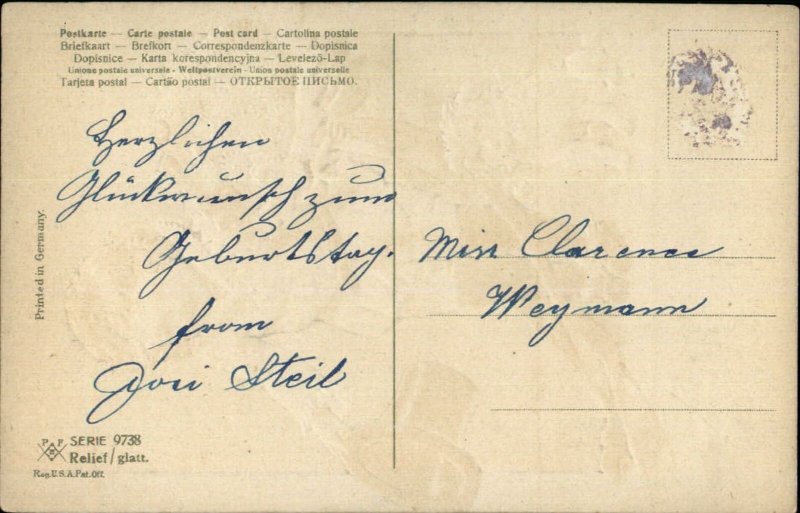 Postkarte — Carte postale — Post card — Cartolina postale
Briefkaart — Brefkort — Correspondenzkarte — Dopisnica
Dopisnice — Karta korespondencyjna — Levelező-Lap
Unione postale universale - Weltpostverein - Union postale universelle
Tarjeta postal — Cartão postal — ОТКРЫТОЕ ПИСЬМО.
Herzlichen
Glückwunsch zum
Geburtstag.
from
Josi Steil
Miss Clarence
Weymann
Printed in Germany.
P F SERIE 9738
Relief/glatt.
Reg.U.S.A.Pat.Off.